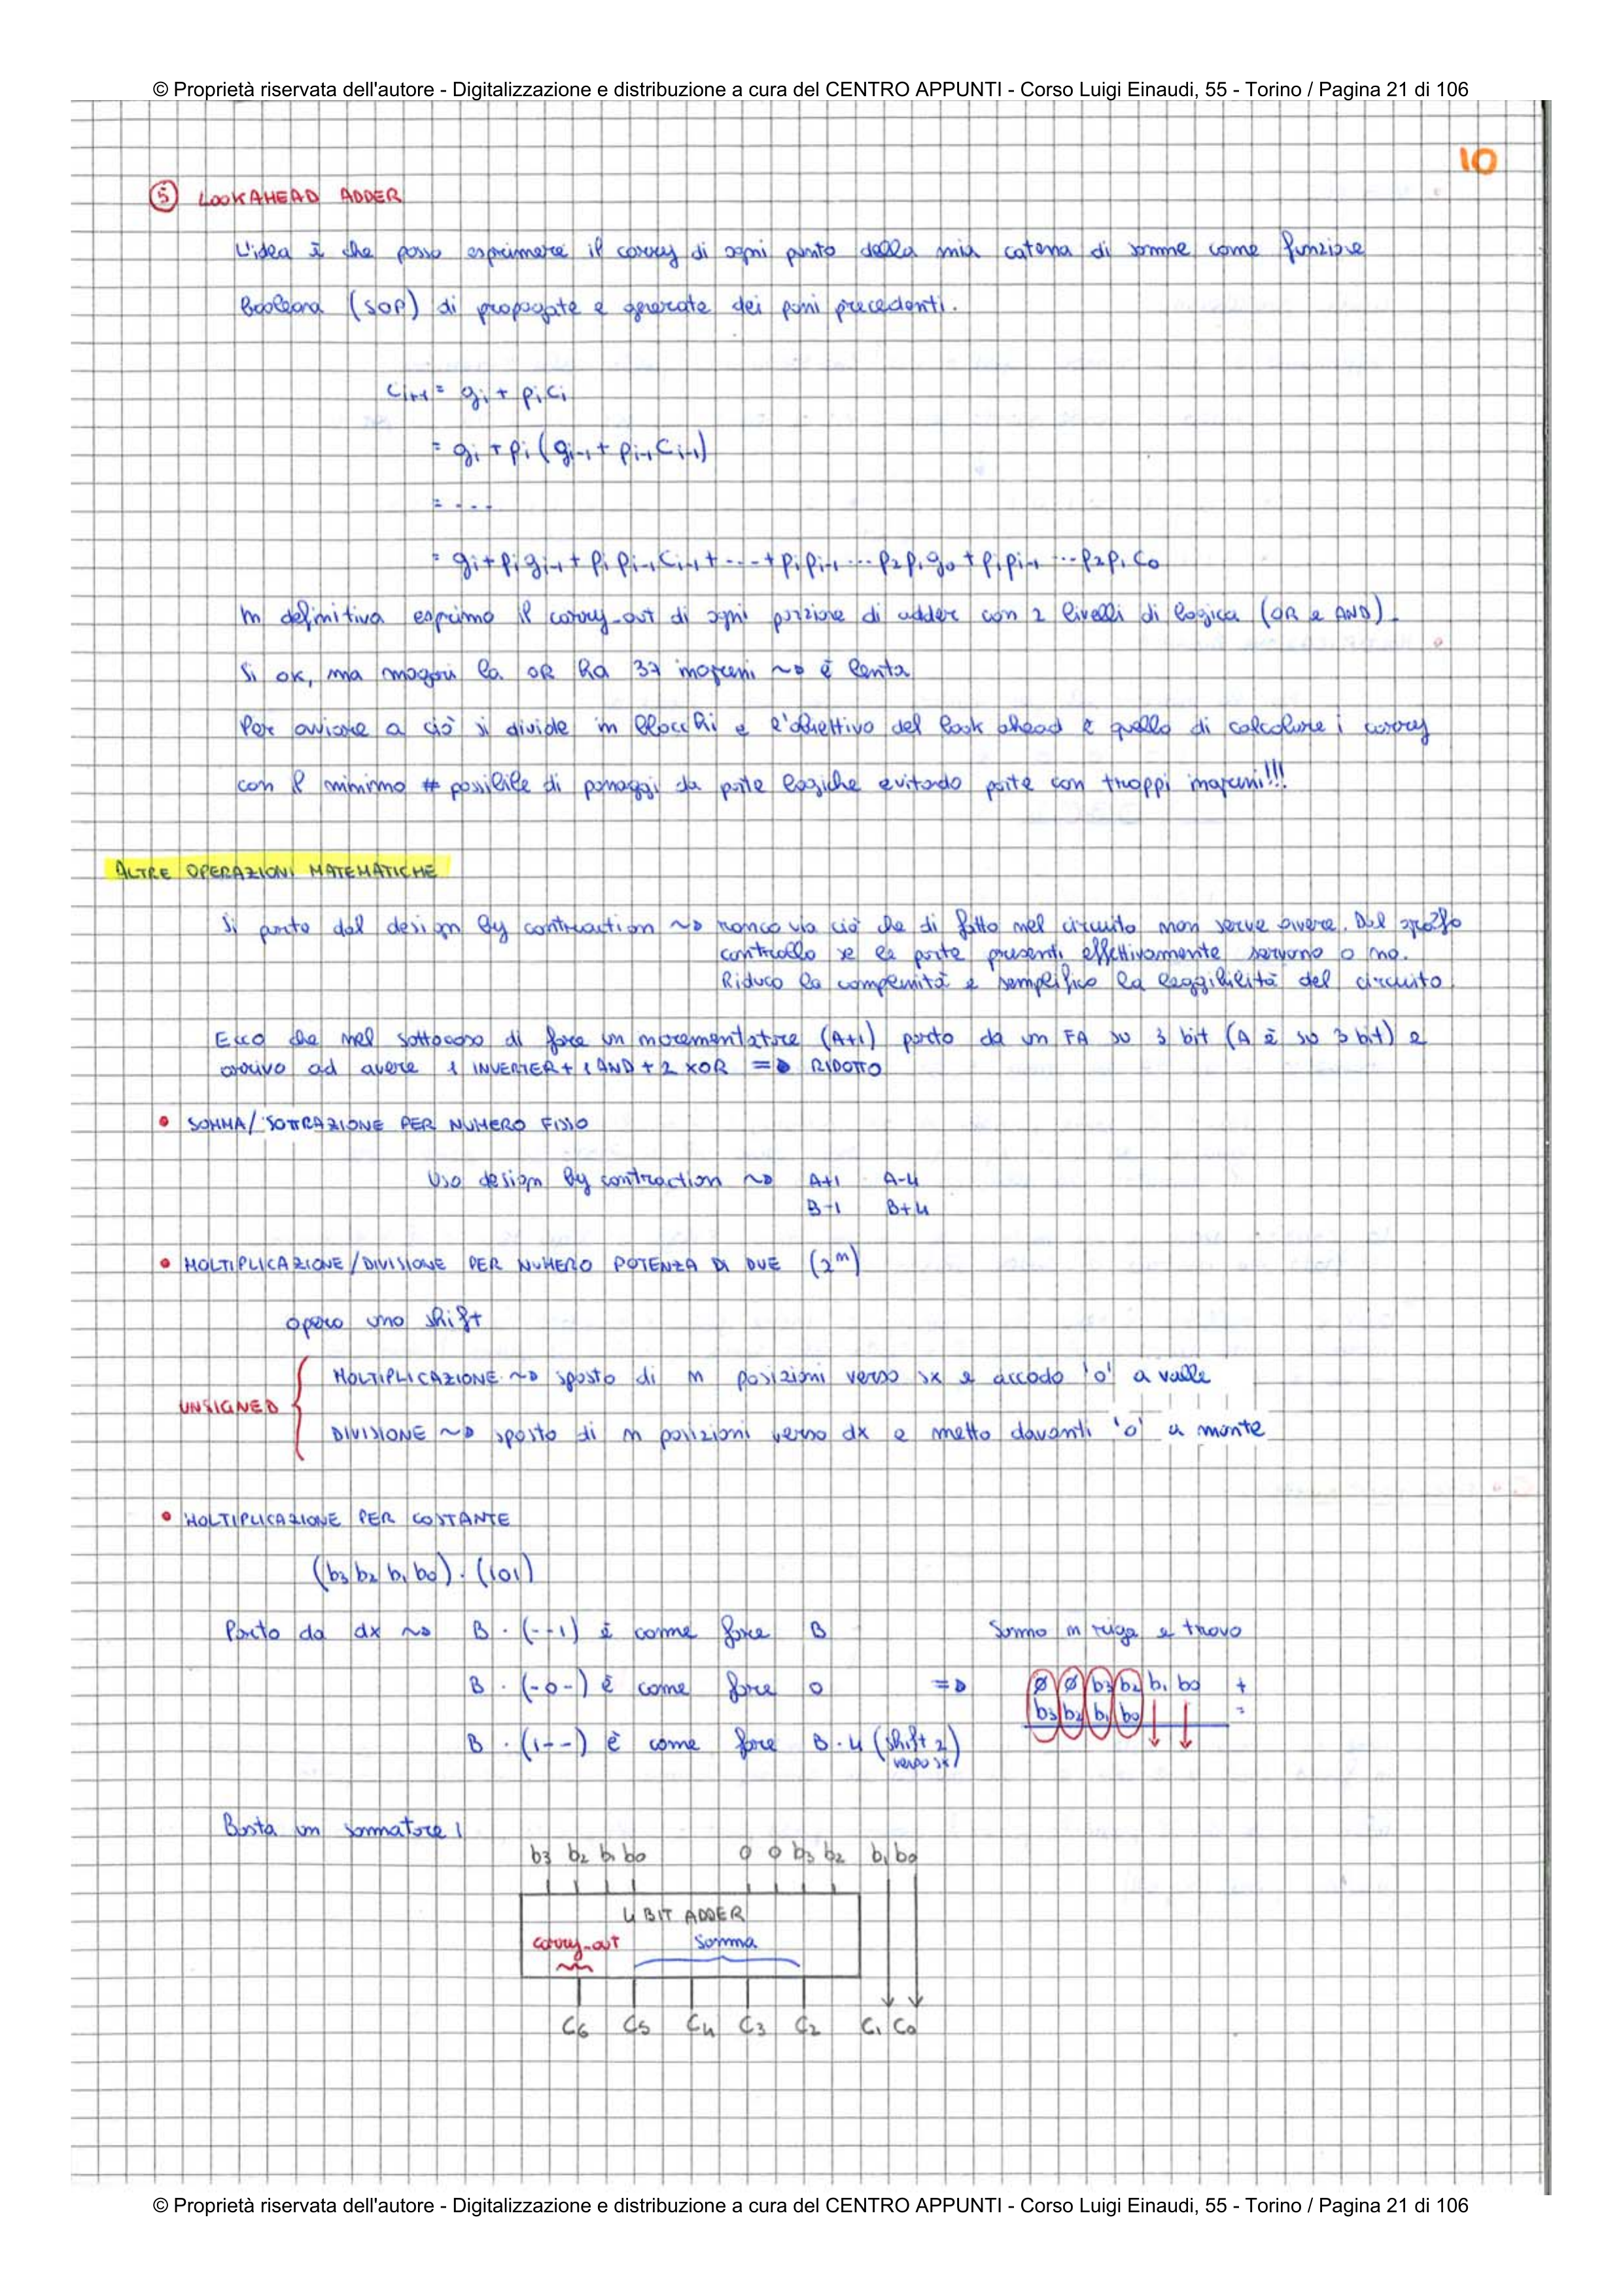 © Proprietà riservata dell'autore - Digitalizzazione e distribuzione a cura del CENTRO APPUNTI - Corso Luigi Einaudi, 55 - Torino / Pagina 21 di 106
10
5 LOOKAHEAD ADDER
L'idea è che posso esprimere il carry di ogni punto della mia catena di somme come funzione
Booleana (SOP) di propagate e generate dei passi precedenti.
Ci+1 = gi + piCi
= gi + pi(gi-1 + pi-1Ci-1)
= ---
= gi + pigi-1 + pipi-1Ci-1 + --- + pipi-1 ... p2p1g0 + pipi-1 ... p2p1C0
In definitiva esprimo il carry-out di ogni porzione di adder con 2 livelli di logica (OR e AND).
Si ok, ma magari la OR ha 37 ingressi ~> è lenta
Per ovviare a ciò si divide in blocchi e l'obiettivo del look ahead è quello di calcolare i carry
con il minimo # possibile di passaggi da porte logiche evitando porte con troppi ingressi!!!
ALTRE OPERAZIONI MATEMATICHE
Si parte dal design by contraction ~> tronco via ciò che di fatto nel circuito non serve avere. Dal grafo
controllo se le porte presenti effettivamente servono o no.
Riduco la complessità e semplifico la leggibilità del circuito
Ecco che nel sottocaso di fare un incrementatore (A+1) parto da un FA su 3 bit (A è su 3 bit) e
arrivo ad avere 1 INVERTER + 1 AND + 2 XOR => RIDOTTO
• SOMMA/SOTTRAZIONE PER NUMERO FISSO
Uso design by contraction ~> A+1 A-4
B-1 B+4
• MOLTIPLICAZIONE/DIVISIONE PER NUMERO POTENZA DI DUE (2^n)
opero uno shift
MOLTIPLICAZIONE ~> sposto di n posizioni verso sx e accodo '0' a valle
UNSIGNED
DIVISIONE ~> sposto di n posizioni verso dx e metto davanti '0' a monte
• MOLTIPLICAZIONE PER COSTANTE
(b3 b2 b1 b0) · (101)
Parto da dx ~> B · (--1) è come fare B Sommo in riga e trovo
B · (-0-) è come fare 0 => Ø Ø b3 b2 b1 b0 +
b3 b2 b1 b0 =
B · (1--) è come fare B·4 (shift 2
verso sx)
Basta un sommatore!
b3 b2 b1 b0 0 0 b3 b2 b1 b0
4 BIT ADDER
carry-out somma
C6 C5 C4 C3 C2 C1 C0
© Proprietà riservata dell'autore - Digitalizzazione e distribuzione a cura del CENTRO APPUNTI - Corso Luigi Einaudi, 55 - Torino / Pagina 21 di 106